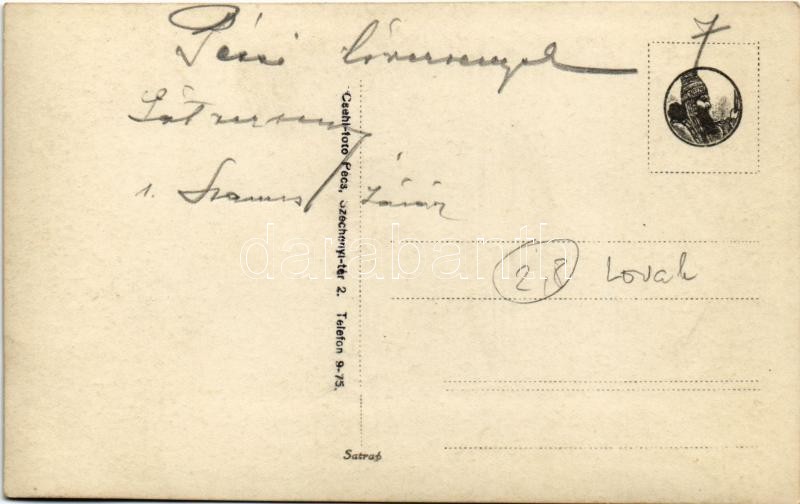 Pécsi lóversenyek
7
1.
Csehi-foto Pécs, Széchenyi-tér 2. Telefon 9-75.
darabanth
2,8 Lovak
Satrap